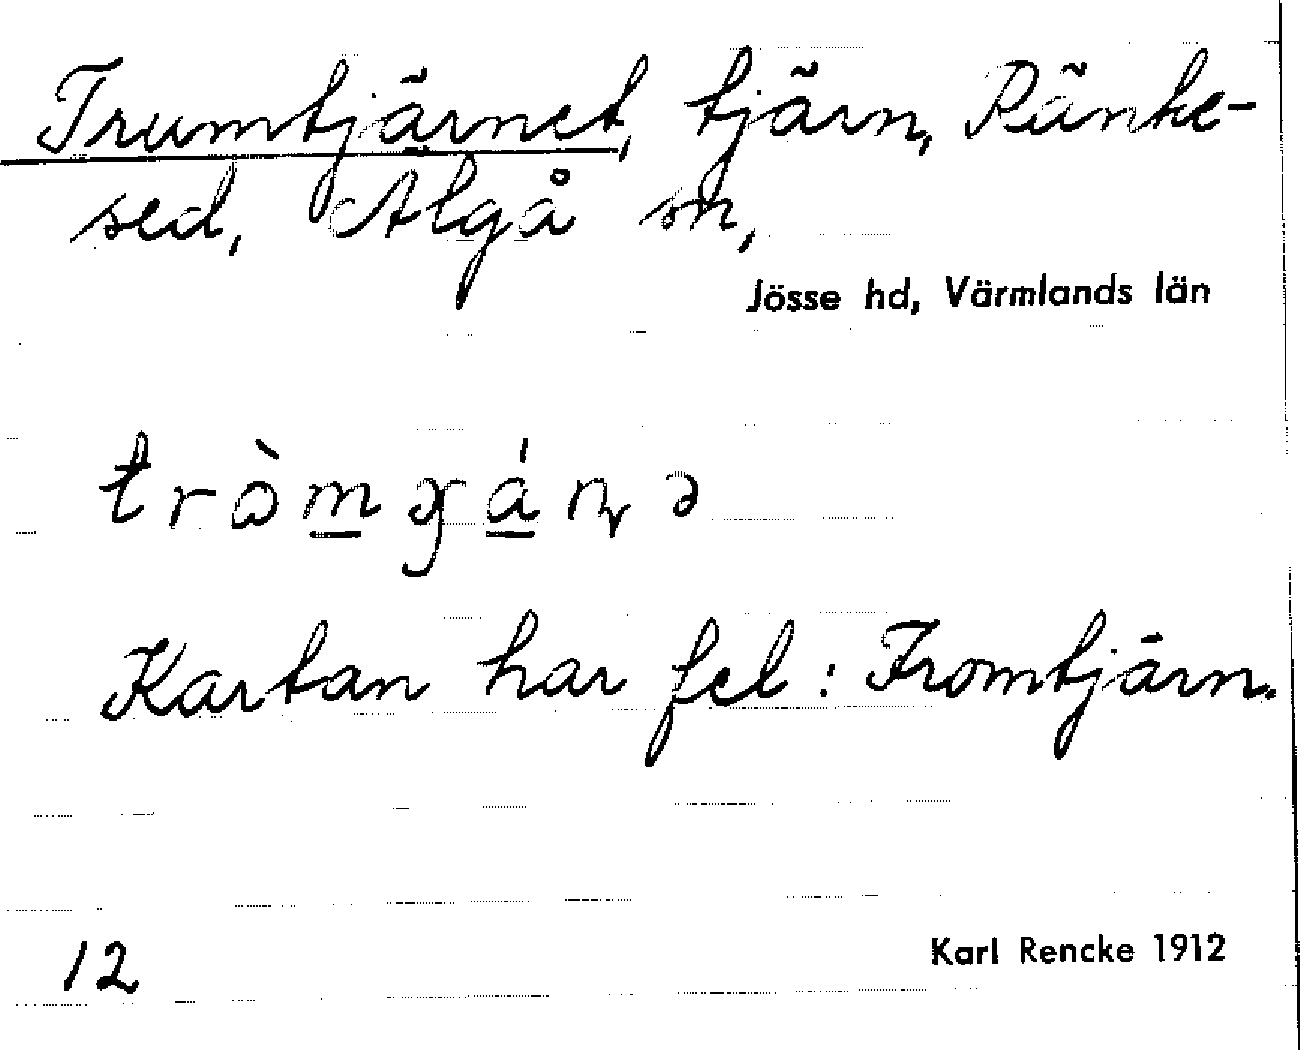 Trumtjärnet, tjärn, Ränke-
sed, Älgå sn,
Jösse hd, Värmlands län
Kartan har fel: Tromtjärn.
12
Karl Rencke 1912